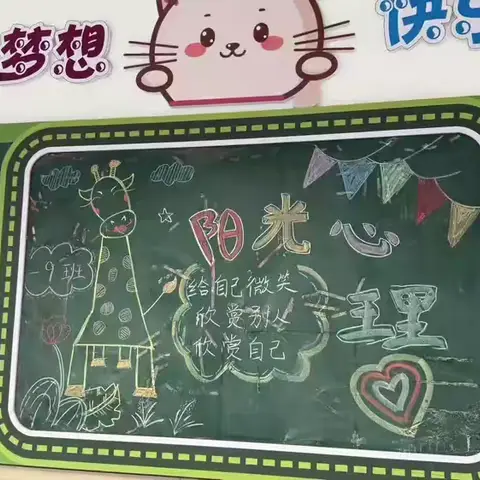 梦想 快
阳光心
理
一9班
给自己微笑
欣赏别人
欣赏自己